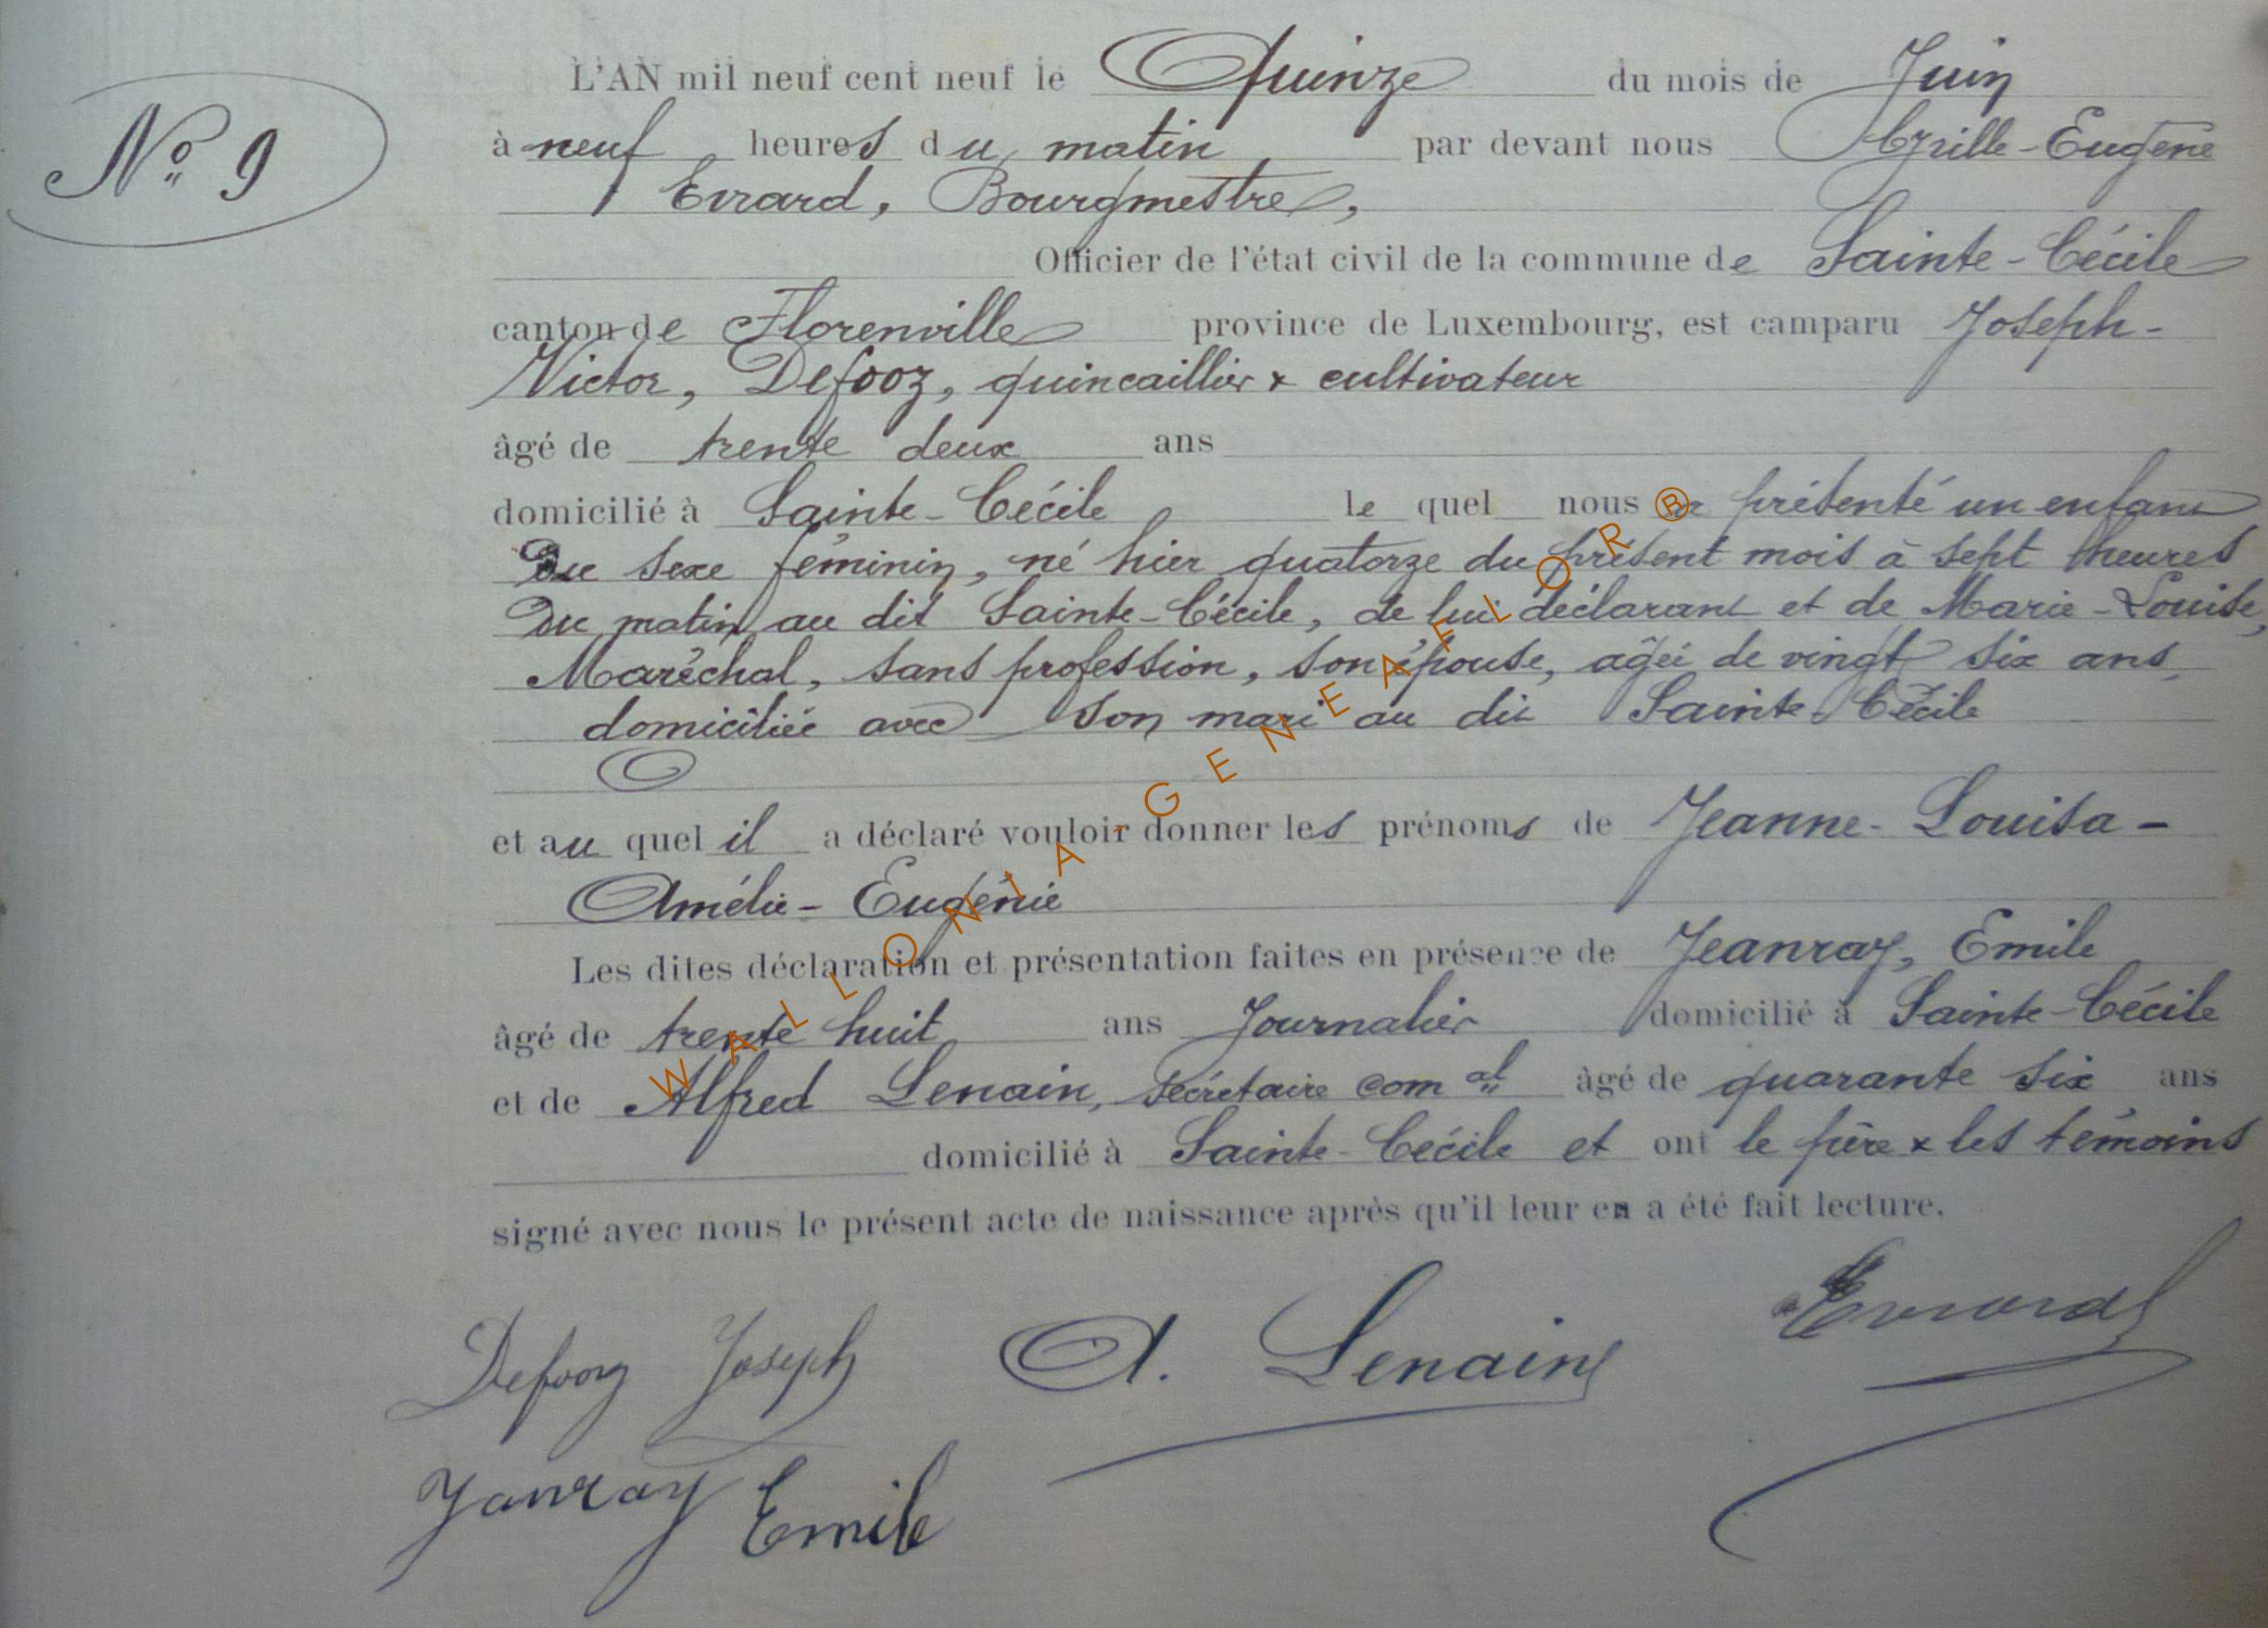 L'AN mil neuf cent neuf le Quinze du mois de Juin
No 9
à neuf heures du matin par devant nous Cyrille-Eugène
Evrard, Bourgmestre,
Officier de l'état civil de la commune de Sainte-Cécile
canton de Florenville province de Luxembourg, est camparu Joseph-
Victor, Defooz, quincaillier & cultivateur
âgé de trente deux ans
domicilié à Sainte-Cécile lequel nous a présenté un enfant
Du sexe féminin, né hier quatorze du présent mois à sept heures
Du matin au dit Sainte-Cécile, de lui déclarant et de Marie-Louise,
Maréchal, sans profession, son épouse, agée de vingt six ans,
domiciliée avec son mari au dit Sainte-Cécile
et au quel il a déclaré vouloir donner les prénoms de Jeanne-Louisa-
Amélie-Eugénie
Les dites déclaration et présentation faites en présence de Jeanray, Emile
âgé de trente huit ans Journalier domicilié à Sainte-Cécile
et de Alfred Lenain, secrétaire com al âgé de quarante six ans
domicilié à Sainte-Cécile et ont le père & les témoins
signé avec nous le présent acte de naissance après qu'il leur en a été fait lecture.
Defooz Joseph A. Lenain Evrard
Janray Emile
WALLONIA-GENEAFLOR®